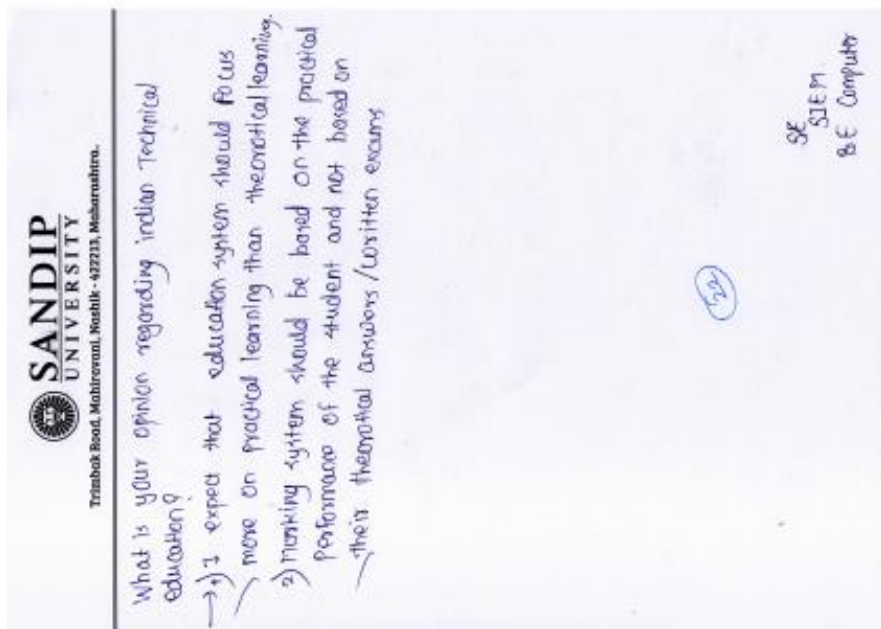 SANDIP
UNIVERSITY
Trimbak Road, Mahiravani, Nashik - 422213, Maharashtra.
What is your opinion regarding indian Technical
education?
→ 1) I expect that education system should focus
more on practical learning than theorotical learning.
2) Marking system should be based on the practical
performance of the student and not based on
their theorotical answers / written exams
22
SE
SIEM
BE Computer